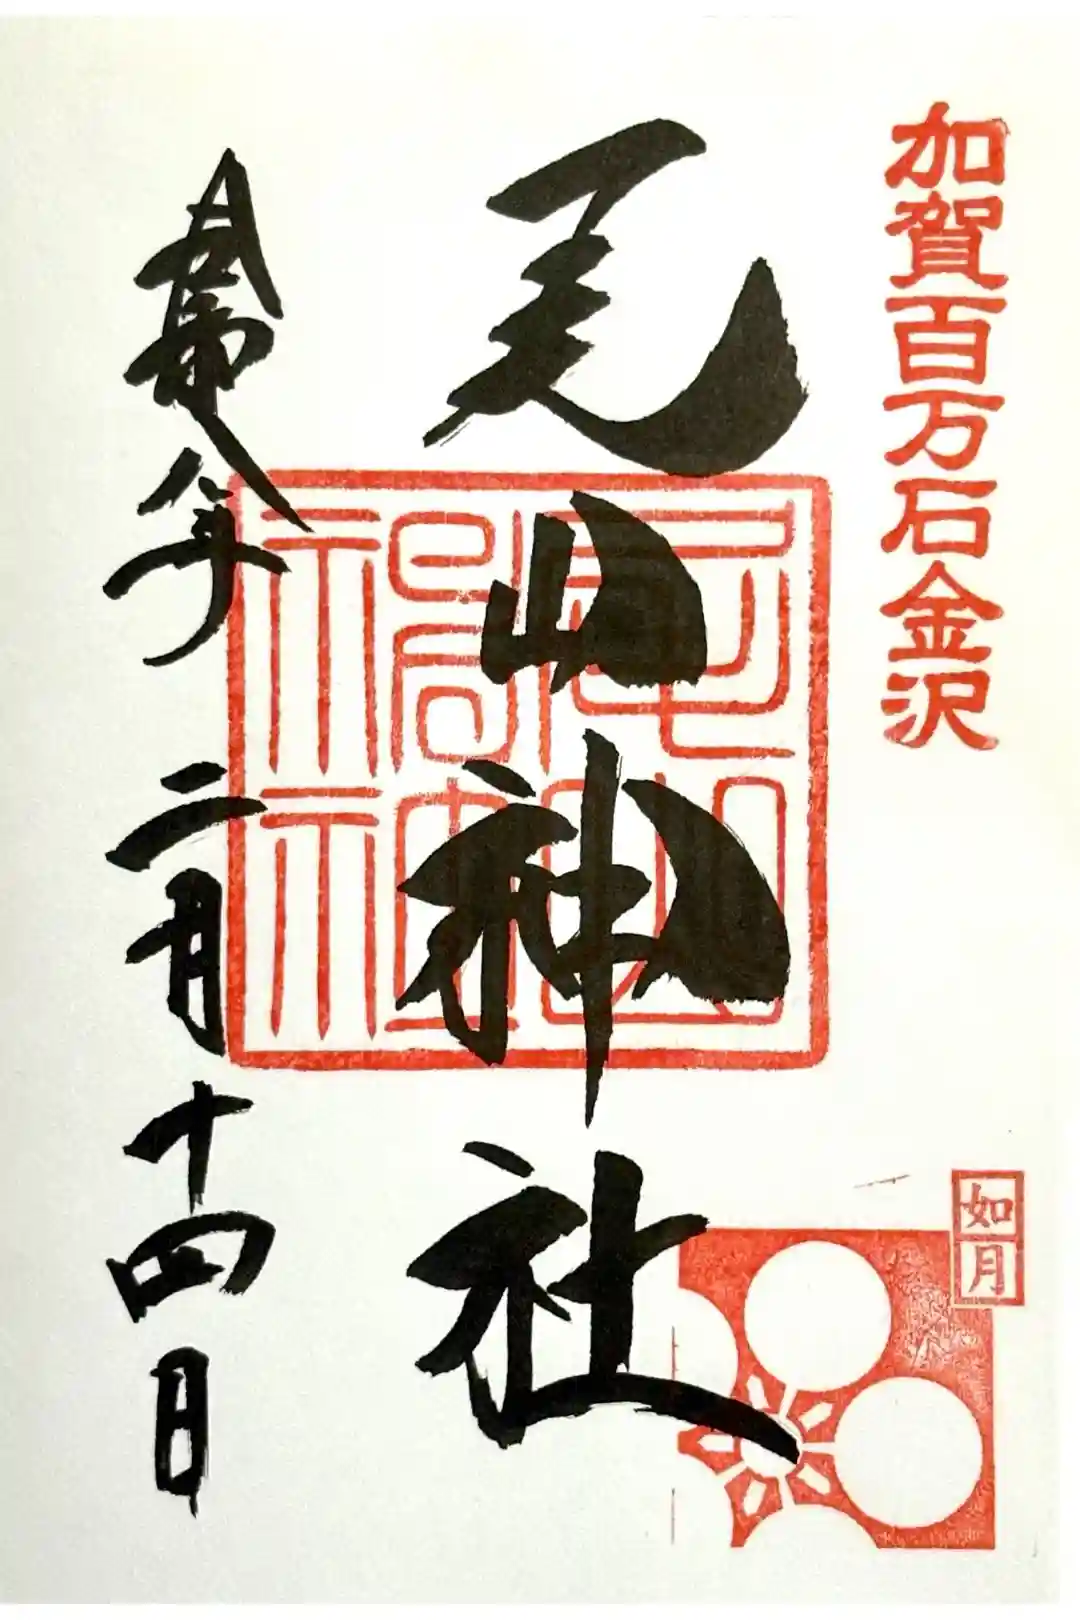 加賀百万石金沢
尾山神社
尾山神社
如月
八年二月十四日